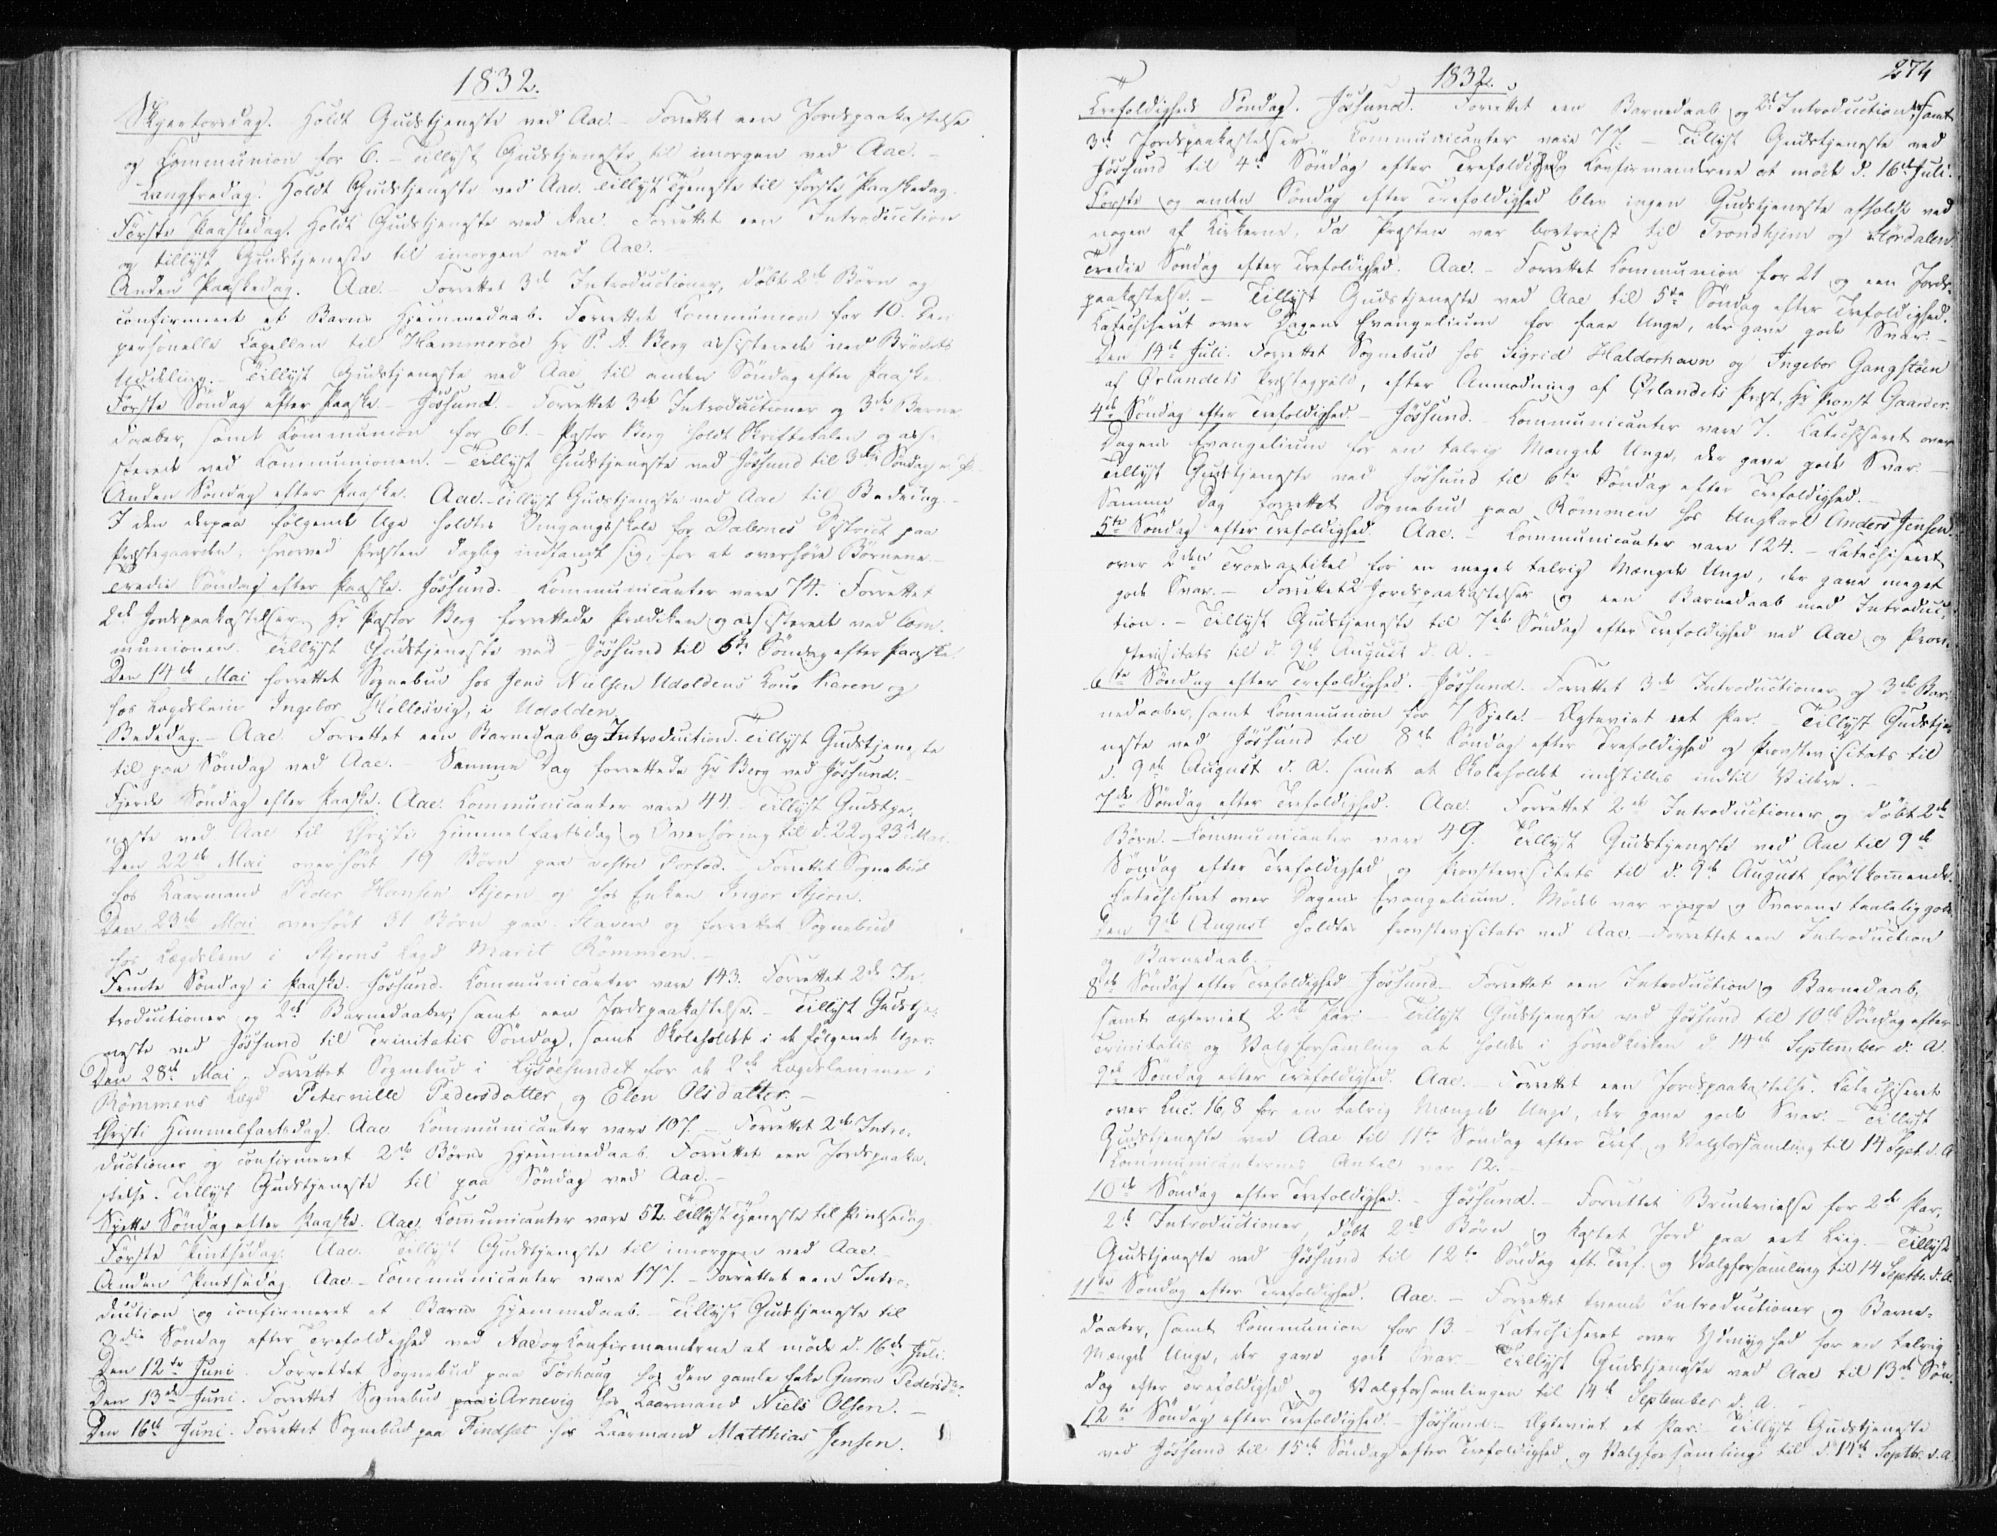 1832.
Skjertorsdag. Holdt Gudstjeneste ved Aae. – Forrettet een Jordspaakastelse
og Communion for 6. – Tillyst Gudstjeneste til imorgen ved Aae. –
Langfredag. Holdt Gudstjeneste ved Aae. Tillyst Tjeneste til første Paaskedag.
Første Paaskedag. Holdt Gudstjeneste ved Aae. Forrettet een Introduction
og tillyst Gudstjeneste til imorgen ved Aae.
Anden Paaskedag. Aae. – Forrettet 3de Introductioner, døbt 2de Børn og
confirmeret et Barns Hjemmedaab. Forrettet Communion for 10. Den
personelle Capellan til Hammerøe Hr P. A. Berg assisterede ved Brødets
Uddeling. Tillyst Gudstjeneste ved Aae til anden Søndag efter Paaske.
Første Søndag efter Paaske. – Jøssund. Forrettet 3de Introductioner og 3de Barne
daaber, samt Communion for 61. – Pastor Berg holdt Skriftetalen og assi-
sterede ved Communionen. – Tillyst Gudstjeneste ved Jøssund til 3die Søndag e. P.
Anden Søndag efter Paaske. Aae. – Tillyst Gudstjeneste ved Aae til Bededag. –
I den derpaa følgende Uge holdtes Omgangsskole for Dalernes District paa
Præstegaarden, hvorved Præsten daglig indfandt sig, for at overhøre Børnene. –
Tredie Søndag efter Paaske. Jøssund. Communicanter vare 74. Forrettet
2de Jordspaakastelser. Hr Pastor Berg forrettede Prædiken og assisterede ved Com-
munionen. Tillyst Gudstjeneste ved Jøssund til 5te Søndag efter Paaske.
Den 14de Mai forrettet Sognebud hos Jens Nielsen Udoldens Kone Karen og
hos Lægdslem Ingebor Hellesvig, i Udolden.
Bededag. – Aae. Forrettet een Barnedaab og Introduction. Tillyst Gudstjeneste
til paa Søndag ved Aae. – Samme Dag forrettede Hr Berg ved Jøssund. –
Fjerde Søndag efter Paaske. Aae. Communicanter vare 44. – Tillyst Gudstje-
neste ved Aae til Christi Himmelfartsdag og Overhøring til d. 22 og 23 Mai.
Den 22de Mai overhørt 19 Børn paa vestre Forfod. Forrettet Sognebud
hos Kaarmand Peder Hansen Stjern og hos Enken Inger Stjern.
Den 23de Mai overhørt 31 Børn paa Staven og forrettet Sognebud
hos Lægdslem i Stjerns Lægd Marit Rømmen. –
Femte Søndag i Paaske. Jøssund. Communicanter vare 143. Forrettet 2de In-
troductioner og 2de Barnedaaber, samt een Jordspaakastelse. – Tillyst Gudstje-
neste ved Jøssund til Trinitatis Søndag, samt Skoleholdet i de følgende Uger.
Den 28de Mai. Forrettet Sognebud i Lysøesundet for de 2de Lægdslemmer i
Rømmens Lægd Peternille Pedersdatter og Elen Olsdatter. –
Christi Himmelfartsdag. Aae Communicanter vare 107. – Forrettet 2de Intro-
ductioner og confirmeret 2de Børns Hjemmedaab. Forrettet een Jordspaaka-
stelse. Tillyst Gudstjeneste til paa Søndag ved Aae. –
Sjette Søndag efter Paaske. Aae. Communicanter vare 52. Tillyst Tjeneste til Pintsedag.
Første Pintsedag. Aae. Tillyst Gudstjeneste til imorgen ved Aae. –
Anden Pintsedag. Aae – Communicanter vare 177. – Forrettet een Intro-
duction og confirmeret et Barns Hjemmedaab. – Tillyst Gudstjeneste til
3die Søndag efter Trefoldighed ved Aae og Confirmanderne at møde d. 16de Juli.
Den 12te Juni. Forrettet Sognebud paa Tørhaug hos den gamle Enke Guru Pedersdtr.
Den 13de Juni. Forrettet Sognebud paa i Arnevig hos Kaarmand Niels Olsen. –
Den 16de Juni. Forrettet Sognebud paa Findset hos Kaarmand Matthias Jensen.
1832.
274
Trefoldigheds Søndag. Jøssund. Forrettet een Barnedaab og 2de Introductioner, samt
3de Jordspaakastelser. Communicanter vare 77. – Tillyst Gudstjeneste ved
Jøssund til 4de Søndag efter Trefoldighed og Confirmanderne at møde d. 16de Juli.
Første og anden Søndag efter Trefoldighed blev ingen Gudstjeneste afholdt ved
nogen af Kirkerne, da Præsten var bortreist til Trondhjem og Størdalen
Tredie Søndag efter Trefoldighed. Aae. – Forrettet Communion for 21 og een Jords-
paakastelse. – Tillyst Gudstjeneste ved Aae til 5te Søndag efter Trefoldighed.
Catechiseret over Dagens Evangelium for faae Unge, der gave gode Svar. –
Den 14de Juli. Forrettet Sognebud hos Sigrid Haldorhavn og Ingebor Gangstøen
af Ørlandets Præstegjeld, efter Anmodning af Ørlandets Præst, Hr Provst Gaarder.
4de Søndag efter Trefoldighed. – Jøssund. – Communicanter vare 7. Catechiseret over
Dagens Evangelium for en talrig Mængde Unge, der gave gode Svar. –
Tillyst Gudstjeneste ved Jøssund til 6te Søndag efter Trefoldighed. –
Samme Dag forrettet Sognebud paa Rømmen hos Ungkarl Anders Jensen.
5te Søndag efter Trefoldighed. Aae. – Communicanter vare 124. – Catechiseret
over 2den Troesartikel for en meget talrig Mængde Unge, der gave meget
gode Svar. – Forrettet 2 Jordspaakastelser og een Barnedaab med Introduc-
tion. – Tillyst Gudstjeneste til 7de Søndag efter Trefoldighed ved Aae og Prov-
stevisitats til d. 9de August d. A. –
6te Søndag efter Trefoldighed. Jøssund. Forrettet 3de Introductioner og 3de Bar-
nedaaber, samt Communion for 7 Sjele. – Ægteviet eet Par. – Tillyst Gudstje-
neste ved Jøssund til 8de Søndag efter Trefoldighed og Provstevisitats til
d. 9de August d. A. samt at Skoleholdet indstilles indtil Videre. –
7de Søndag efter Trefoldighed. Aae. Forrettet 2de Introductioner og døbt 2de
Børn. – Communicanter vare 49. Tillyst Gudstjeneste ved Aae til 9de
Søndag efter Trefoldighed og Provstevisitats til d. 9de August førstkomende.
Catechiseret over Dagens Evangelium. Mødet var ringe og Svarene taalelig gode.
Den 9de August holdtes Provstevisitats ved Aae. – Forrettet een Introduction
og Barnedaab. –
8de Søndag efter Trefoldighed Jøssund. Forrettet een Introduction og Barnedaab,
samt ægteviet 2de Par. – Tillyst Gudstjeneste ved Jøssund til 10de Søndag efter
Trinitatis og Valgforsamling at holdes i Hovedkirken d 14de September d. A.
9de Søndag efter Trefoldighed. Aae. – Forrettet een Jordspaakastelse. Catechiseret
over Luc. 16, 8 for en talrig Mængde Unge, der gave gode Svar. – Tillyst
Gudstjeneste ved Aae til 11te Søndag efter Tref. og Valgforsamling til 14 Sept. d. A
Communicanternes Antal var 12. –
10de Søndag efter Trefoldighed. – Jøssund. – Forrettet Brudevielse for 2de Par,
2de Introductioner, døbt 2de Børn og kastet Jord paa eet Liig. – Tillyst
Gudstjeneste ved Jøssund til 12te Søndag eft. Tref. og Valgforsamling til 14 Septbr. d. A
11te Søndag efter Trefoldighed. Aae. – Forrettet tvende Introductioner og Barne-
daaber, samt Communion for 13 – Catechiseret over Ydmyghed for en talrig
Mængde Unge, der gave gode Svar – Tillyst Gudstjeneste ved Aae til 13de Søn-
dag efter Trefoldighed og Valgforsamlingen til 14de September d. A. –
12te Søndag efter Trefoldighed. – Jøssund. – Ægteviet et Par. – Tillyst Gudstjeneste
ved Jøssund til 15de Søndag efter Trefoldighed og Valgforsamling til d. 14de Septbr. d. A